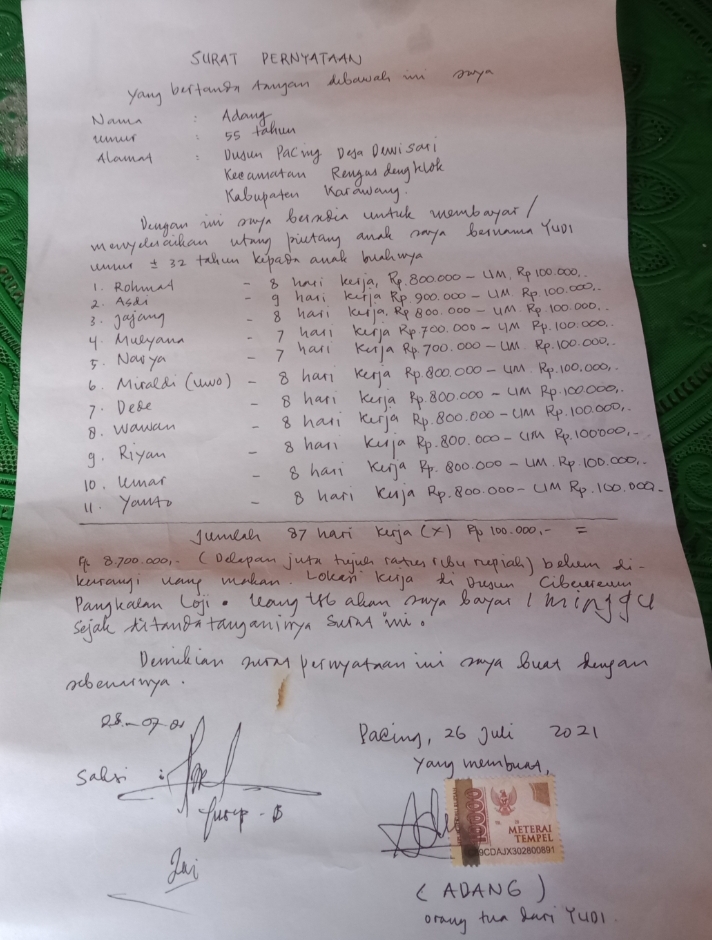 SURAT PERNYATAAN
Yang bertanda tangan dibawah ini saya
Nama : Adang
umur : 55 tahun
Alamat : Dusun Pacing Desa Dewisari
Kecamatan Rengasdengklok
Kabupaten Karawang.
Dengan ini saya bersedia untuk membayar/
menyelesaikan utang piutang anak saya bernama YUDI
umur ± 32 tahun kepada anak buahnya
1. Rohmat - 8 hari kerja, Rp. 800.000 - UM. Rp 100.000,.
2. Asdi - 9 hari kerja Rp. 900.000 - UM. Rp. 100.000,.
3. Jajang - 8 hari kerja, Rp 800.000 - UM. Rp. 100.000,.
4. Mulyana - 7 hari kerja Rp 700.000 - UM. Rp. 100.000,.
5. Narya - 7 hari kerja Rp. 700.000 - UM. Rp. 100.000,.
6. Miraldi (uwo) - 8 hari kerja Rp. 800.000 - UM. Rp. 100.000,.
7. Dede - 8 hari kerja Rp. 800.000 - UM Rp. 100.000,.
8. Wawan - 8 hari kerja Rp. 800.000 - UM Rp. 100.000,.
9. Riyan - 8 hari kerja Rp. 800.000 - UM Rp 100.000,-.
10. Umar - 8 hari kerja Rp. 800.000 - UM. Rp. 100.000,-.
11. Yanto - 8 hari kerja Rp. 800.000 - UM Rp. 100.000.-
Jumlah 87 hari kerja (x) Rp 100.000,- =
Rp 8.700.000,- (Delapan juta tujuh ratus ribu rupiah) belum di-
kurangi uang makan. Lokasi kerja di Dusun Cibeureum
Pangkalan Loji. uang tsb akan saya bayar 1 minggu
sejak ditandatanganinya surat ini.
Demikian surat pernyataan ini saya buat dengan
sebenarnya.
Pacing, 26 Juli 2021
Yang membuat,
Saksi :
METERAI
TEMPEL
9CDAJX302800891
(ADANG)
orang tua dari YUDI.